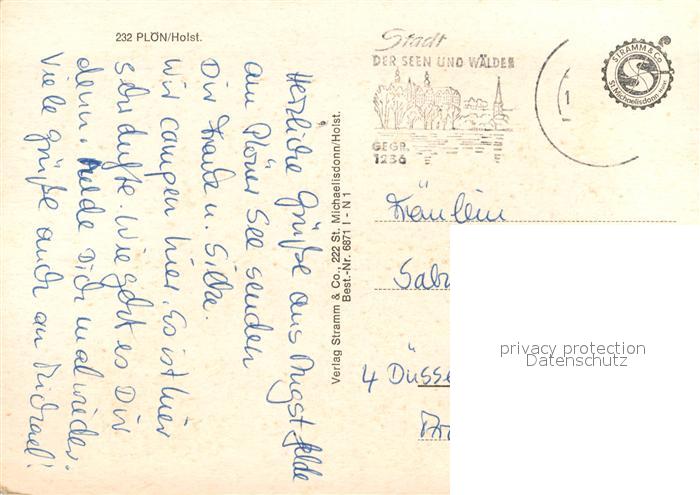 232 PLÖN/Holst.
Herzliche Grüße aus Augstfelde
am Plöner See senden
Dir Traute u. Silke.
Wir campen hier. Es ist hier
sehr dufte. Wie geht es Dir
denn. Melde Dich mal wieder.
Viele Grüße auch an Michael!
Verlag Stramm & Co., 222 St. Michaelisdonn/Holst.
Best.-Nr. 6871 I - N 1
Stadt
DER SEEN UND WÄLDER
GEGR.
1236
STRAMM & Co
St. Michaelisdonn
Fräulein
4 Düsse
privacy protection
Datenschutz